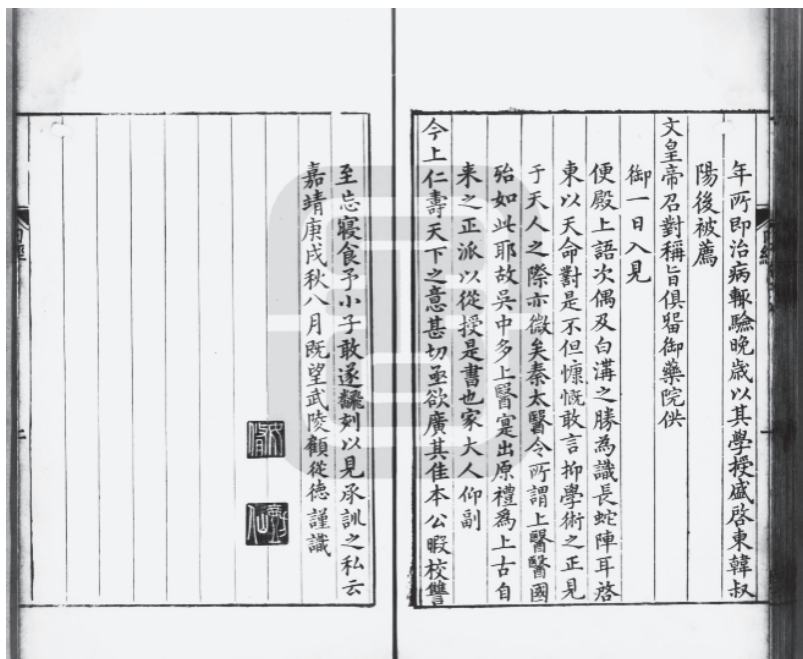 年所即治病輒驗晚歲以其學授盛啓東韓叔
陽後被薦
文皇帝召對稱旨俱留御藥院供
御一日入見
便殿上語次偶及白溝之勝為識長蛇陣耳啓
東以天命對是不但慷慨敢言抑學術之正見
于天人之際亦微矣秦太醫令所謂上醫醫國
殆如此耶故吳中多上醫寔出原禮為上古自
來之正派以從授是書也家大人仰副
今上仁壽天下之意甚切亟欲廣其佳本公暇校讐
至忘寢食予小子敢遂翻刻以見承訓之私云
嘉靖庚戌秋八月既望武陵顧從德謹識